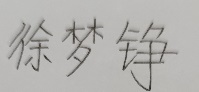 徐梦铮